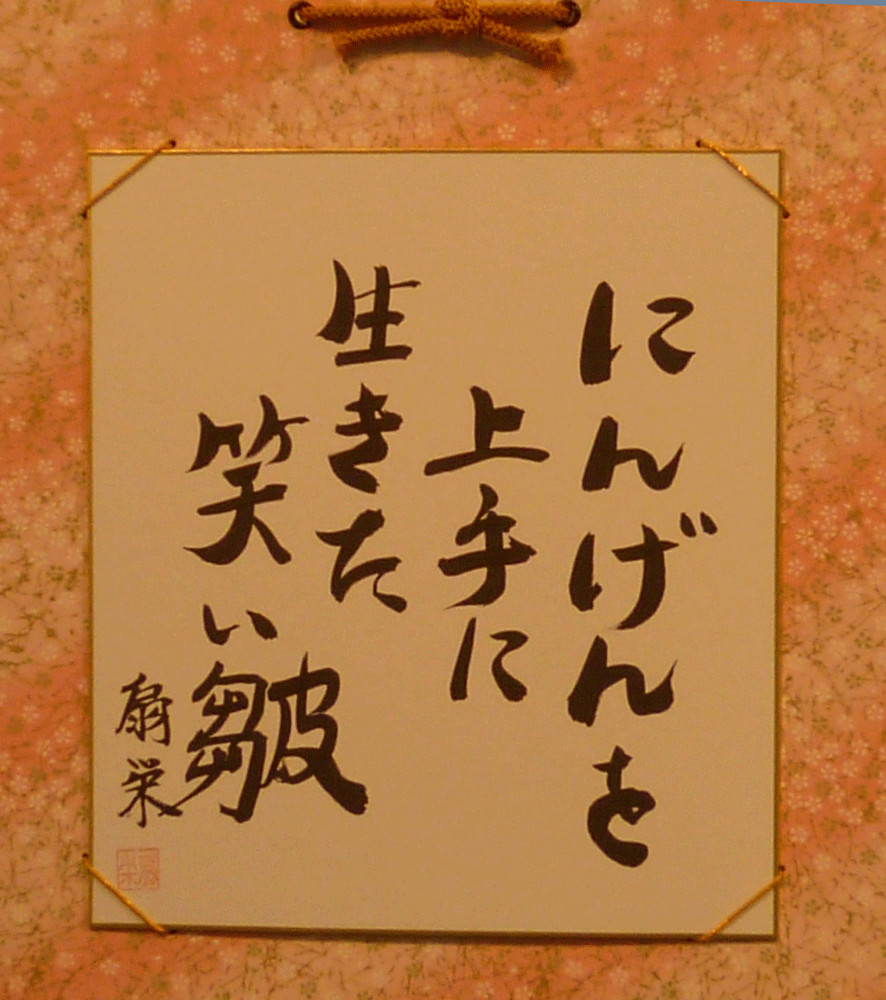 にんげんを
上手に
生きた
笑い皺
扇栄